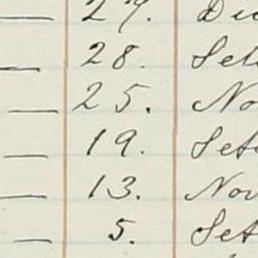 — 27. Di
— 28. Se
— 25. No
— 19. Se
— 13. Nov
— 5. Set